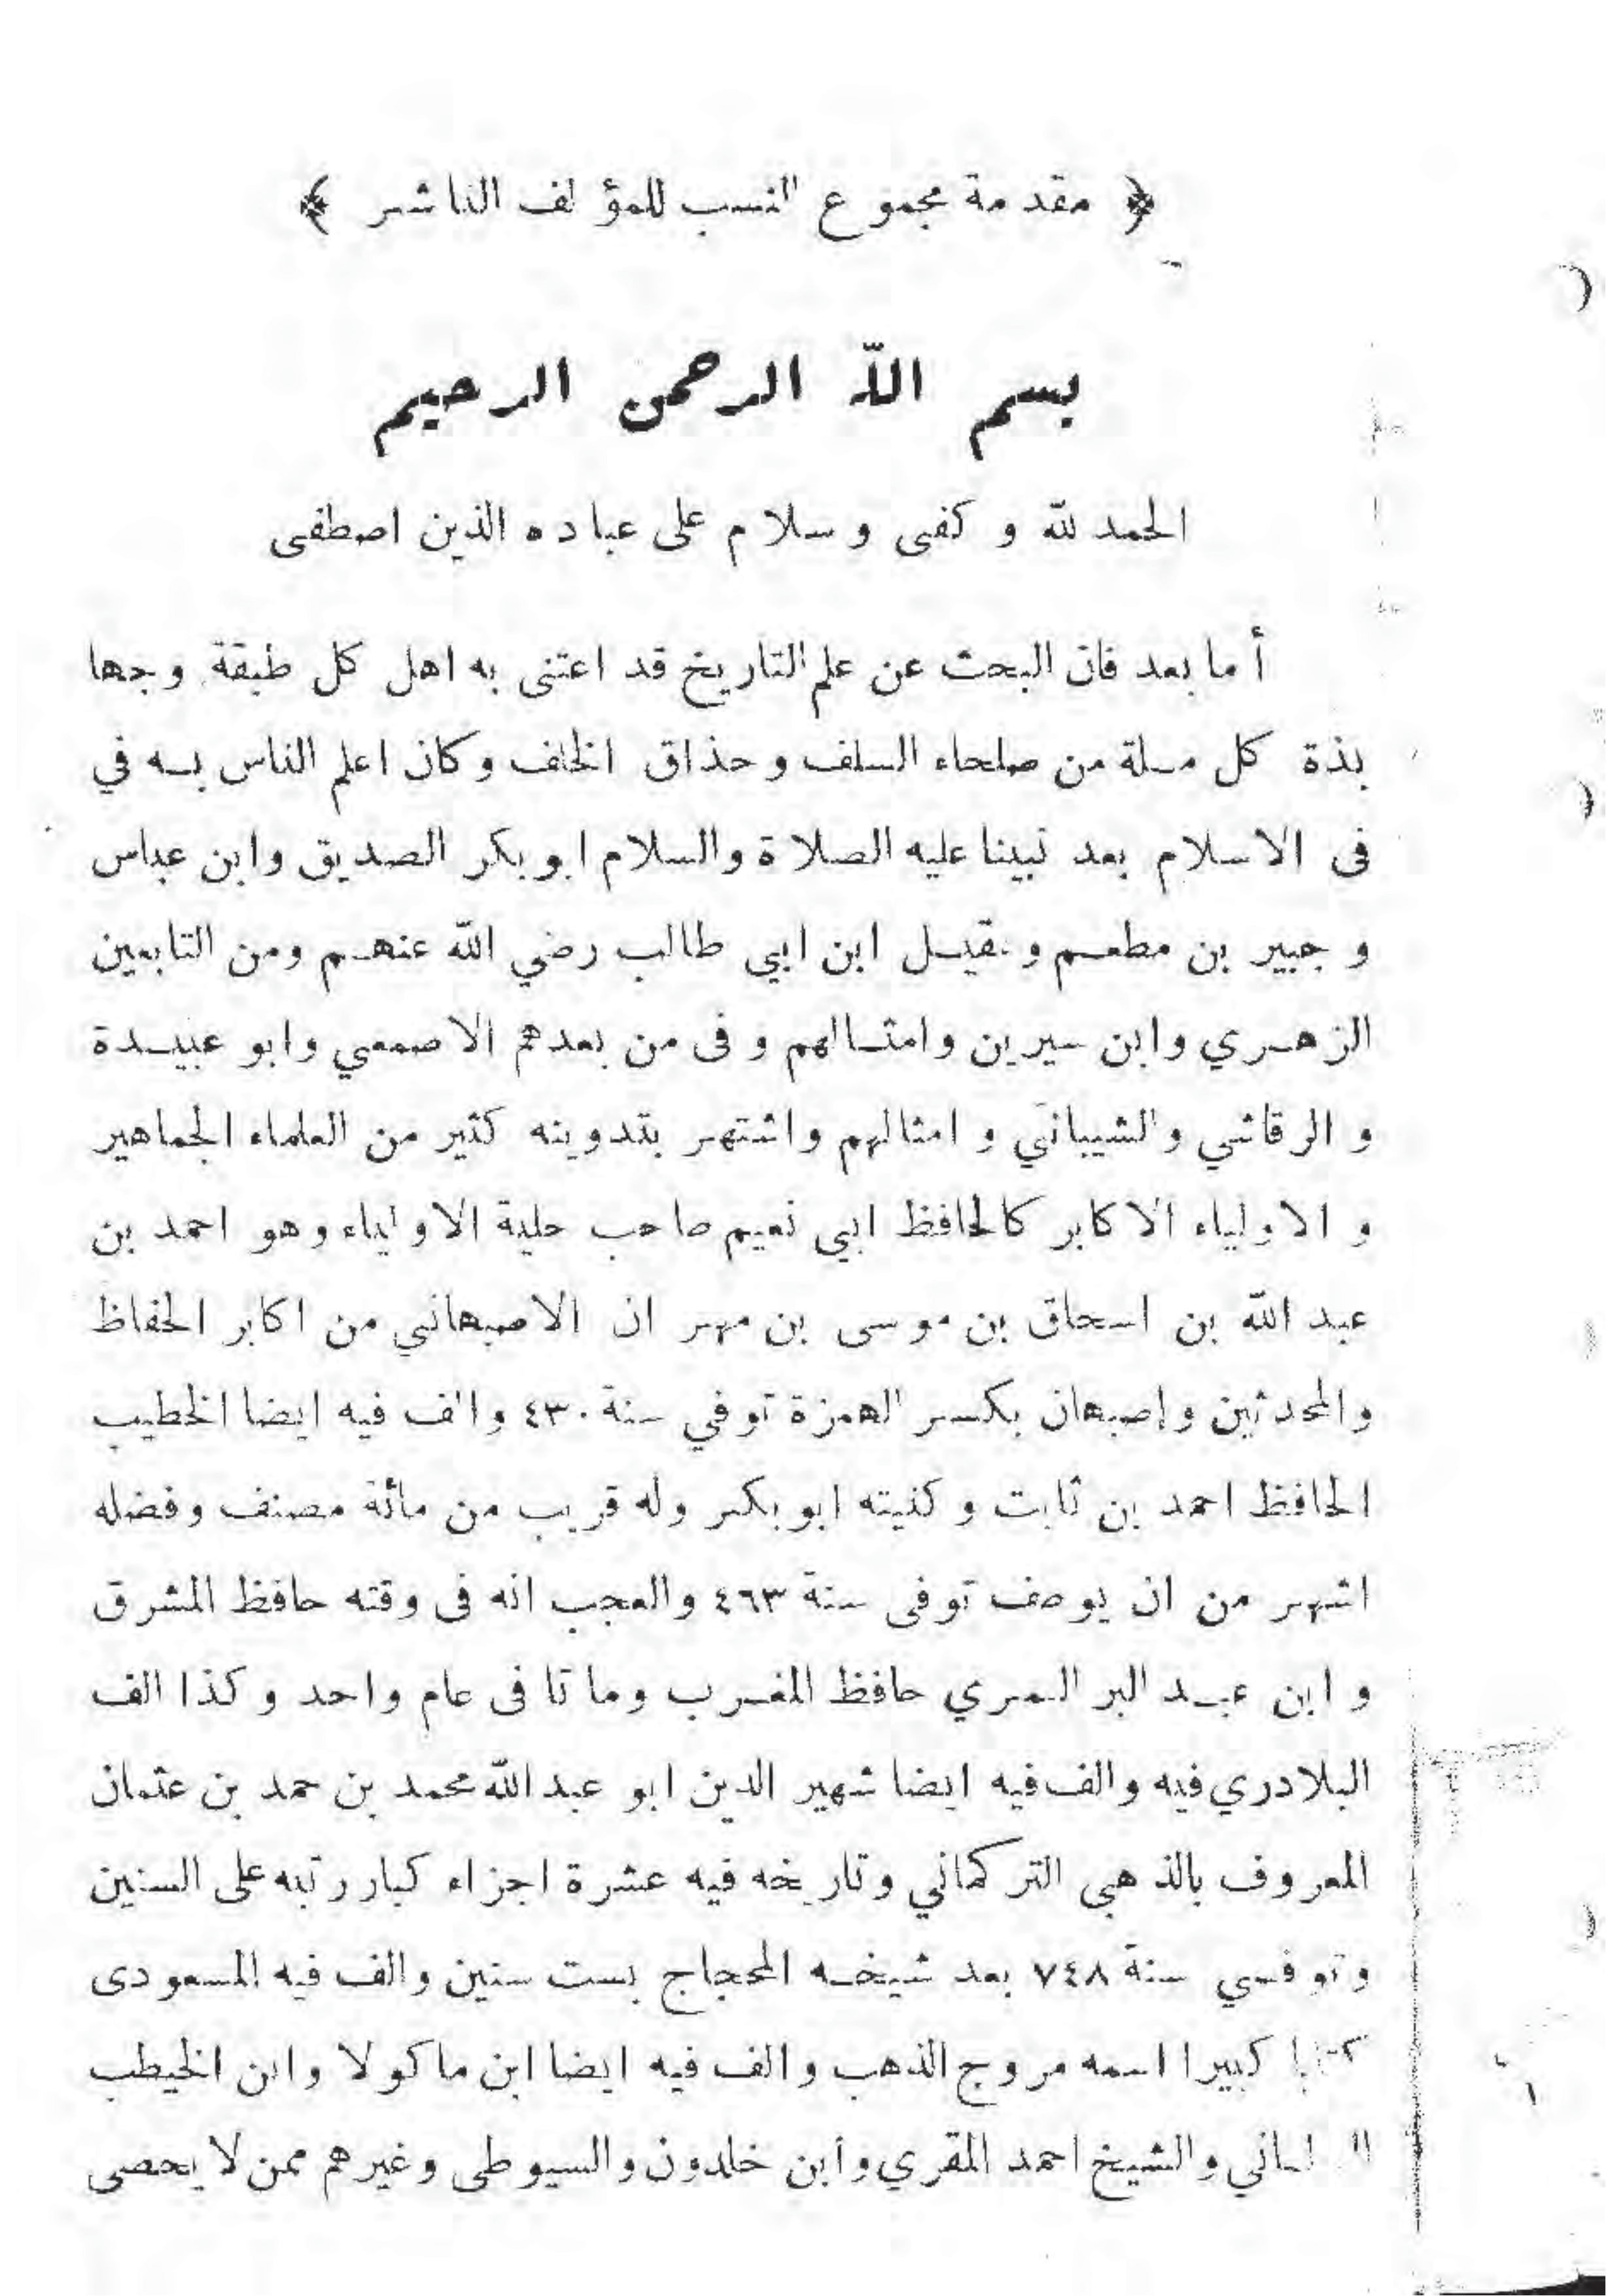 ﴿ مقدمة مجموع النسب للمؤلف الناشر ﴾
بسم الله الرحمن الرحيم
الحمد لله و كفى و سلام على عباده الذين اصطفى
أما بعد فان البحث عن علم التاريخ قد اعتنى به اهل كل طبقة وجها
بذة كل مسلة من صلحاء السلف وحذاق الخلف وكان اعلم الناس به في
فى الاسلام بعد نبينا عليه الصلاة والسلام ابو بكر الصديق وابن عباس
و جبير بن مطعم و عقيل ابن ابي طالب رضي الله عنهم ومن التابعين
الزهري وابن سيرين وامثالهم و فى من بعدهم الاصمعي وابو عبيدة
و الرقاشي والشيباني و امثالهم واشتهر بتدوينه كثير من العلماء الجماهير
و الاولياء الاكابر كالحافظ ابي نعيم صاحب حلية الاولياء وهو احمد بن
عبد الله بن اسحاق بن موسى بن مهر ان الاصبهاني من اكابر الحفاظ
والمحدثين وإصبهان بكسر الهمزة توفي سنة ٤٣٠ والف فيه ايضا الخطيب
الحافظ احمد بن ثابت و كنيته ابو بكر وله قريب من مائة مصنف وفضله
اشهر من ان يوصف توفى سنة ٤٦٣ والعجب انه فى وقته حافظ المشرق
و ابن عبد البر النمري حافظ المغرب وماتا فى عام واحد وكذا الف
البلادري فيه والف فيه ايضا شهير الدين ابو عبد الله محمد بن حمد بن عثمان
المعروف بالذهبى التركماني وتاريخه فيه عشرة اجزاء كبار رتبه على السنين
وتوفي سنة ٧٤٨ بعد شيخه المحجاج بست سنين والف فيه المسعودى
كتابا كبيرا اسمه مروج الذهب والف فيه ايضا ابن ماكولا وابن الخيطب
والشيخ احمد المقري وأبن خلدون والسيوطى وغيرهم ممن لا يحصى